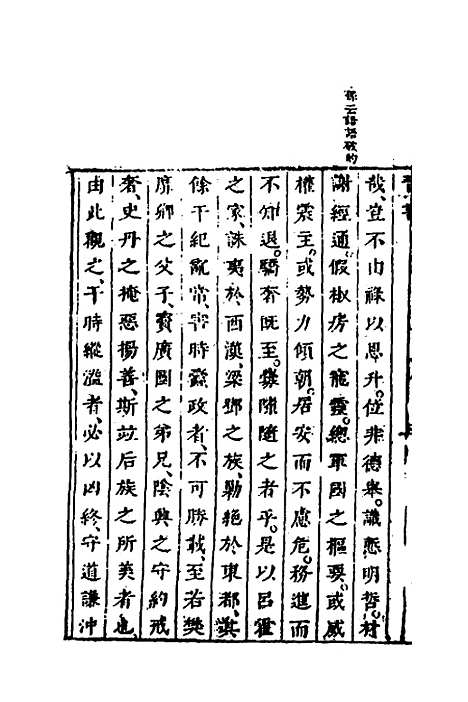 語語破的
哉、豈不由祿以恩升。位非德舉。識慙明悊。材
謝經通。假椒房之寵靈。總軍國之樞要。或威
權震主。或勢力傾朝。居安而不慮危。務進而
不知退。驕奢既至。釁隙隨之者乎。是以呂霍
之家、誅夷於西漢、梁鄧之族、勦絕於東都、其
餘干紀亂常、害時蠹政者、不可勝載、至若樊
靡卿之父子、竇廣國之弟兄、陰興之守約戒
奢、史丹之掩惡揚善、斯竝后族之所美者也、
由此觀之、干時縱溢者、必以凶終、守道謙沖